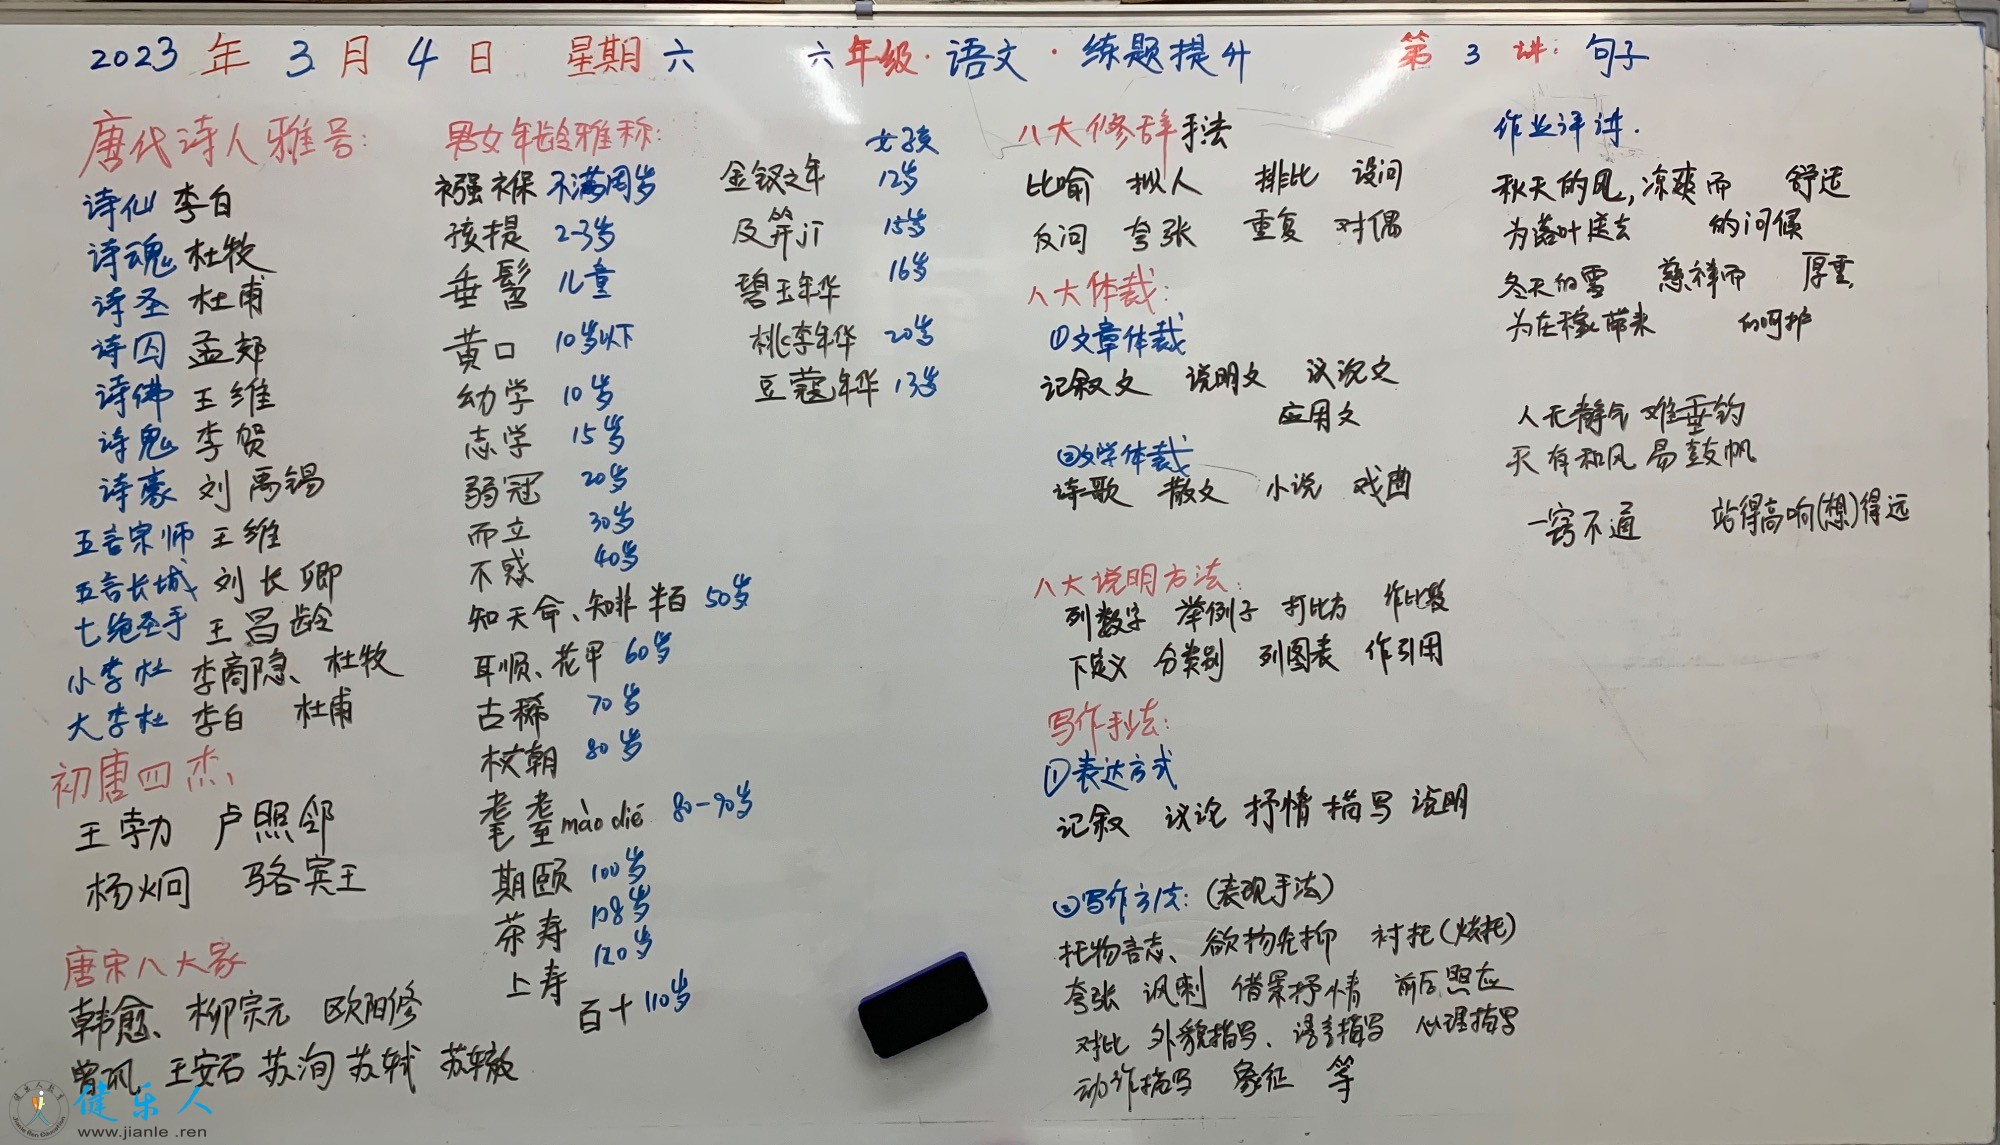 2023年3月4日 星期六 六年级·语文·练题提升 第3讲：句子
唐代诗人雅号：
诗仙 李白
诗魂 杜牧
诗圣 杜甫
诗囚 孟郊
诗佛 王维
诗鬼 李贺
诗豪 刘禹锡
五言宗师 王维
五言长城 刘长卿
七绝圣手 王昌龄
小李杜 李商隐、杜牧
大李杜 李白 杜甫
初唐四杰、
王勃 卢照邻
杨炯 骆宾王
唐宋八大家
韩愈、柳宗元 欧阳修
曾巩 王安石 苏洵 苏轼 苏辙
男女年龄雅称：
襁褓 不满周岁
孩提 2-3岁
垂髫 儿童
黄口 10岁以下
幼学 10岁
志学 15岁
弱冠 20岁
而立 30岁
不惑 40岁
知天命、知非 半百 50岁
耳顺、花甲 60岁
古稀 70岁
杖朝 80岁
耄耋 mào dié 80-90岁
期颐 100岁
茶寿 108岁
上寿 120岁
百十 110岁
女孩
金钗之年 12岁
及笄 jī 15岁
碧玉年华 16岁
桃李年华 20岁
豆蔻年华 13岁
八大修辞手法
比喻 拟人 排比 设问
反问 夸张 重复 对偶
八大体裁：
①文章体裁
记叙文 说明文 议论文
应用文
②文学体裁
诗歌 散文 小说 戏曲
八大说明方法：
列数字 举例子 打比方 作比较
下定义 分类别 列图表 作引用
写作手法：
①表达方式
记叙 议论 抒情 描写 说明
②写作方法：（表现手法）
托物言志、欲扬先抑 衬托（烘托）
夸张 讽刺 借景抒情 前后照应
对比 外貌描写、语言描写 心理描写
动作描写 象征 等
作业评讲.
秋天的风，凉爽而 舒适
为落叶送去 的问候
冬天的雪 慈祥而 厚重
为庄稼带来 的呵护
人无静气难垂钓
天有和风易鼓帆
一窍不通 站得高响(想)得远
健乐人
www.jianle.ren